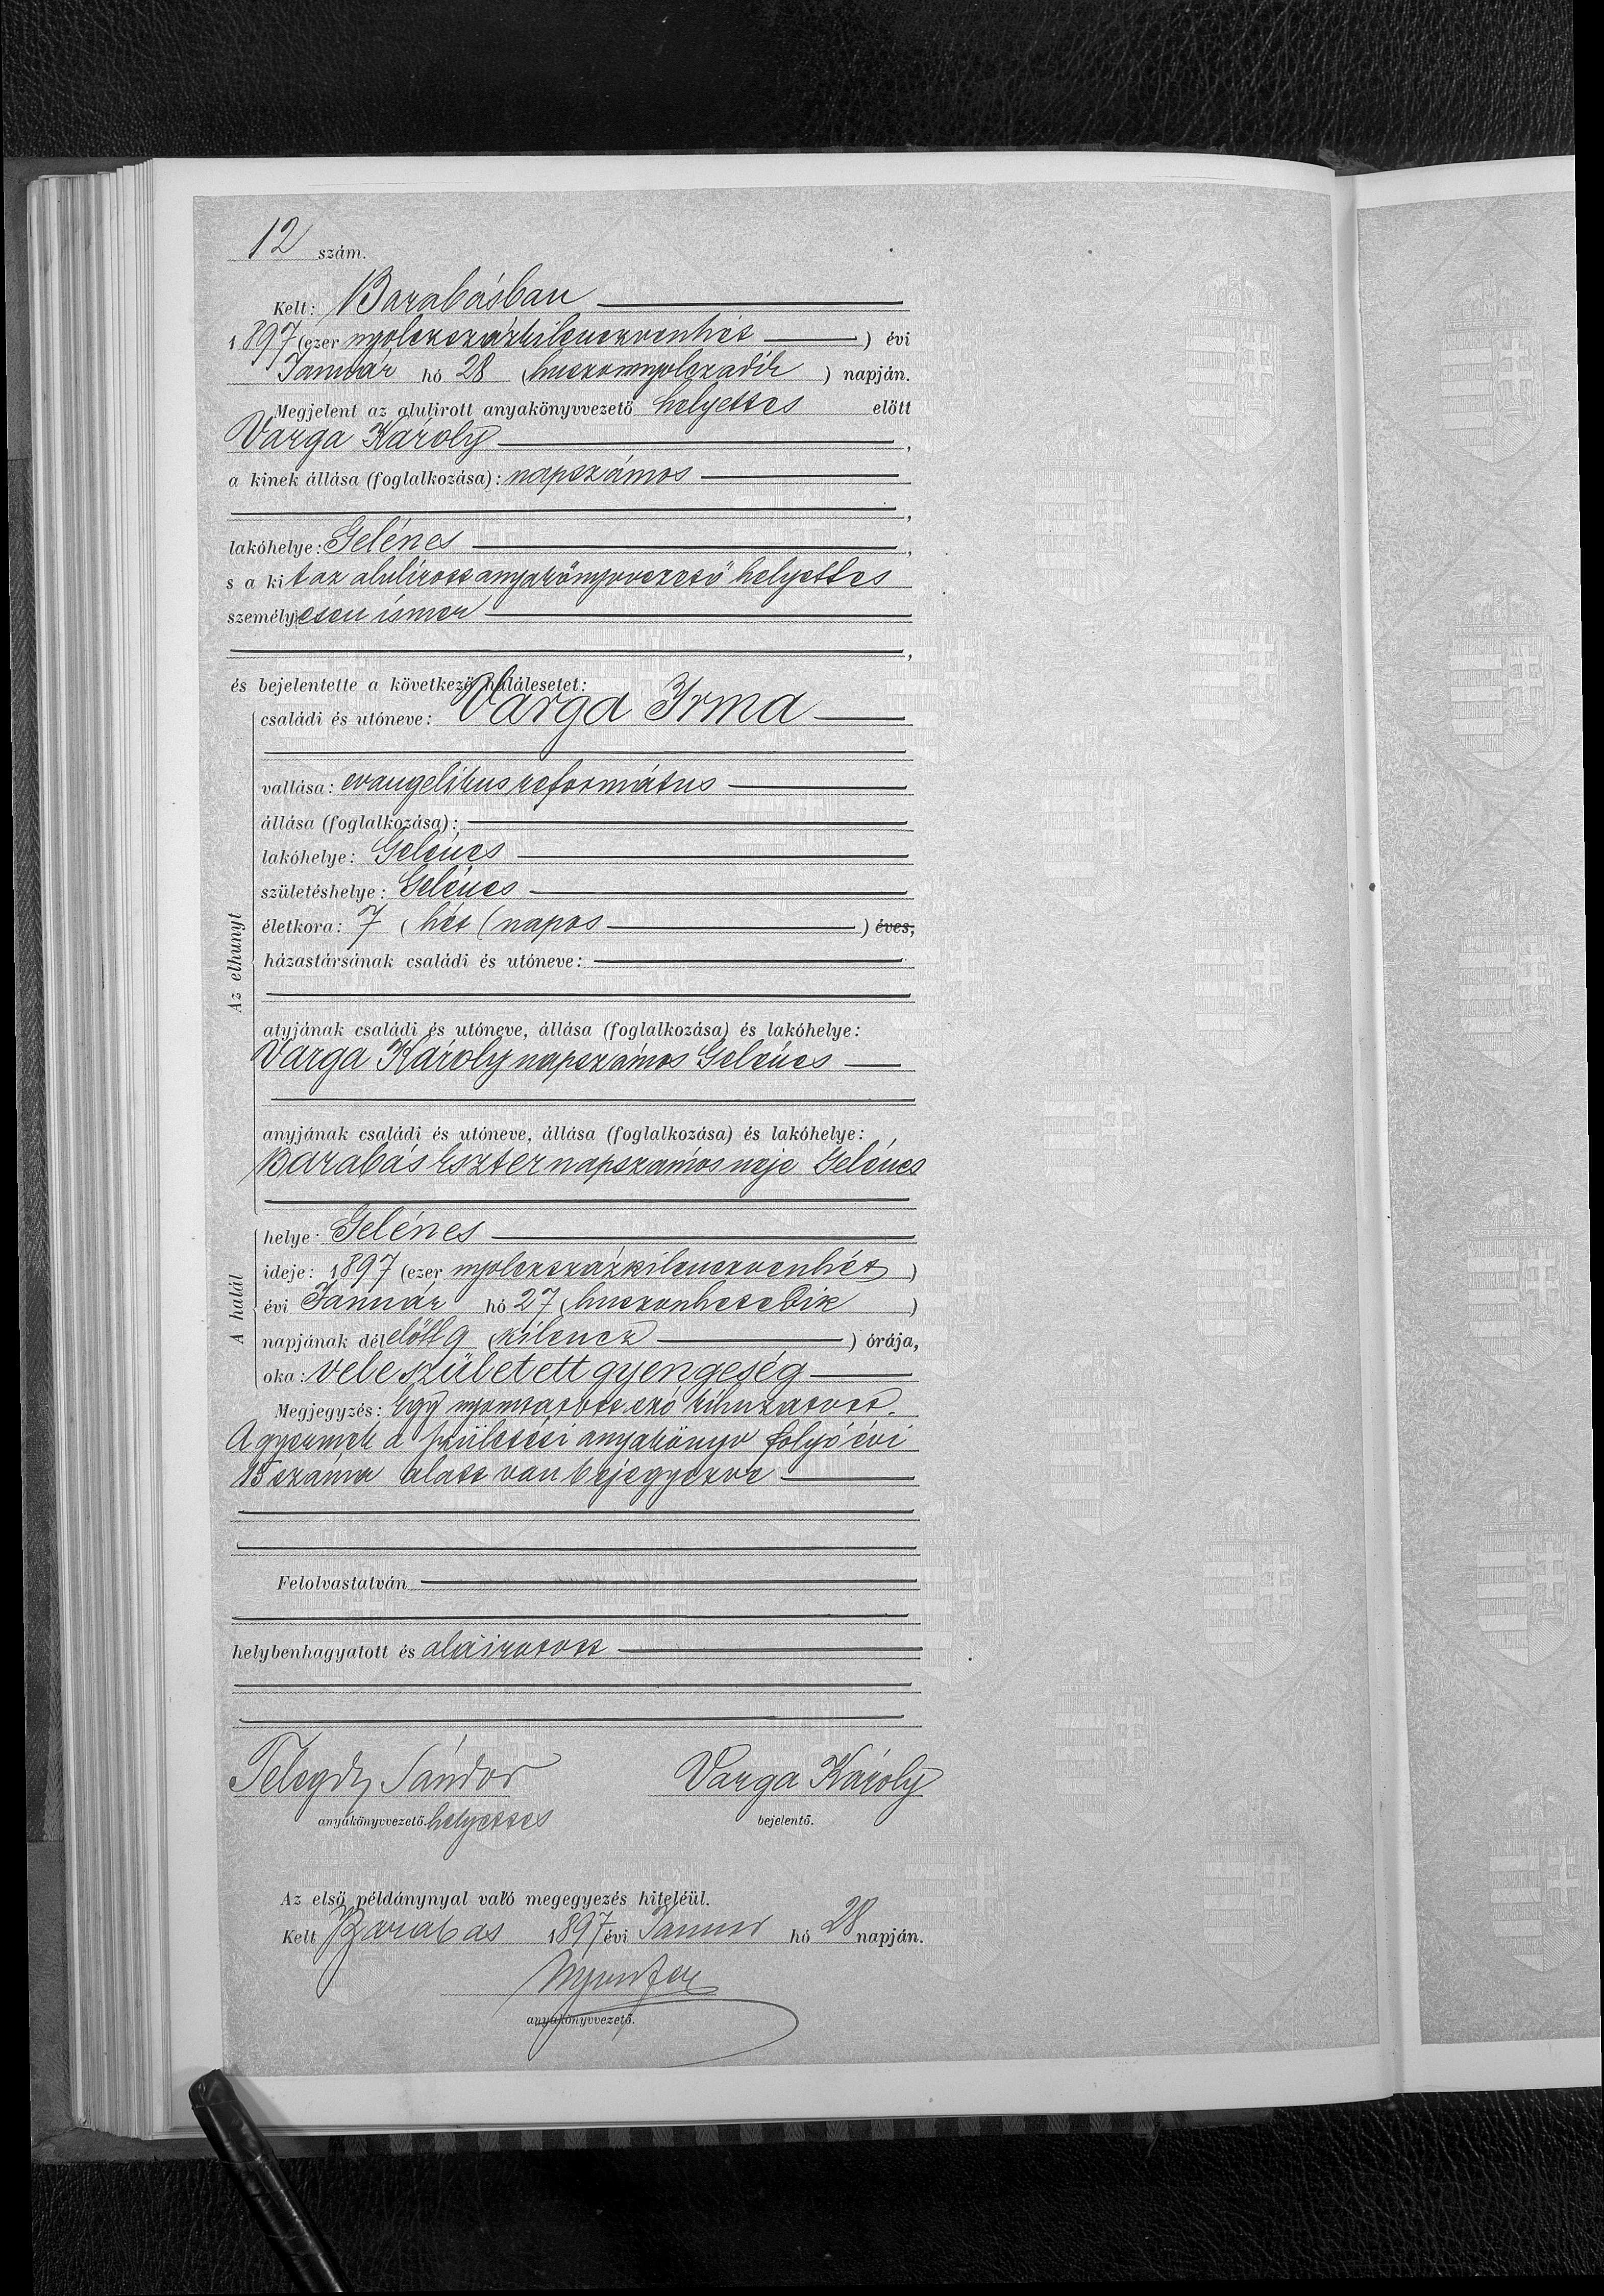 12 szám.
Kelt: Barabásban
1897 (ezer nyolczszázkilenczvenhét) évi
Január hó 28 (huszonnyolczadik) napján.
Megjelent az alulirott anyakönyvvezető helyettes előtt
Varga Károly,
a kinek állása (foglalkozása): napszámos
,
lakóhelye: Gelénes,
s a kit az alulirott anyakönyvvezető helyettes
személyesen ismer
,
és bejelentette a következő halálesetet:
Az elhunyt
családi és utóneve: Varga Irma
vallása: evangelikus református
állása (foglalkozása):
lakóhelye: Gelénes
születéshelye: Gelénes
életkora: 7 (hét (napos) éves;
házastársának családi és utóneve:
atyjának családi és utóneve, állása (foglalkozása) és lakóhelye:
Varga Károly napszámos Gelénes
anyjának családi és utóneve, állása (foglalkozása) és lakóhelye:
Barabás Eszter napszámos neje Gelénes
A halál
helye: Gelénes
ideje: 1897 (ezer nyolczszázkilenczvenhét)
évi Január hó 27 (huszonhetedik)
napjának délelőtt 9 (kilencz) órája,
oka: veleszületett gyengeség
Megjegyzés: Egy nyomtatott szó kihuzatott.
A gyermek a születési anyakönyv folyó évi
15 száma alatt van bejegyezve
Felolvastatván
helybenhagyatott és aláiratott
Telegdy Sándor Varga Károly
anyakönyvvezető. helyettes bejelentő.
Az első példánynyal való megegyezés hiteléül.
Kelt Barabás 1897 évi Január hó 28 napján.
anyakönyvvezető.